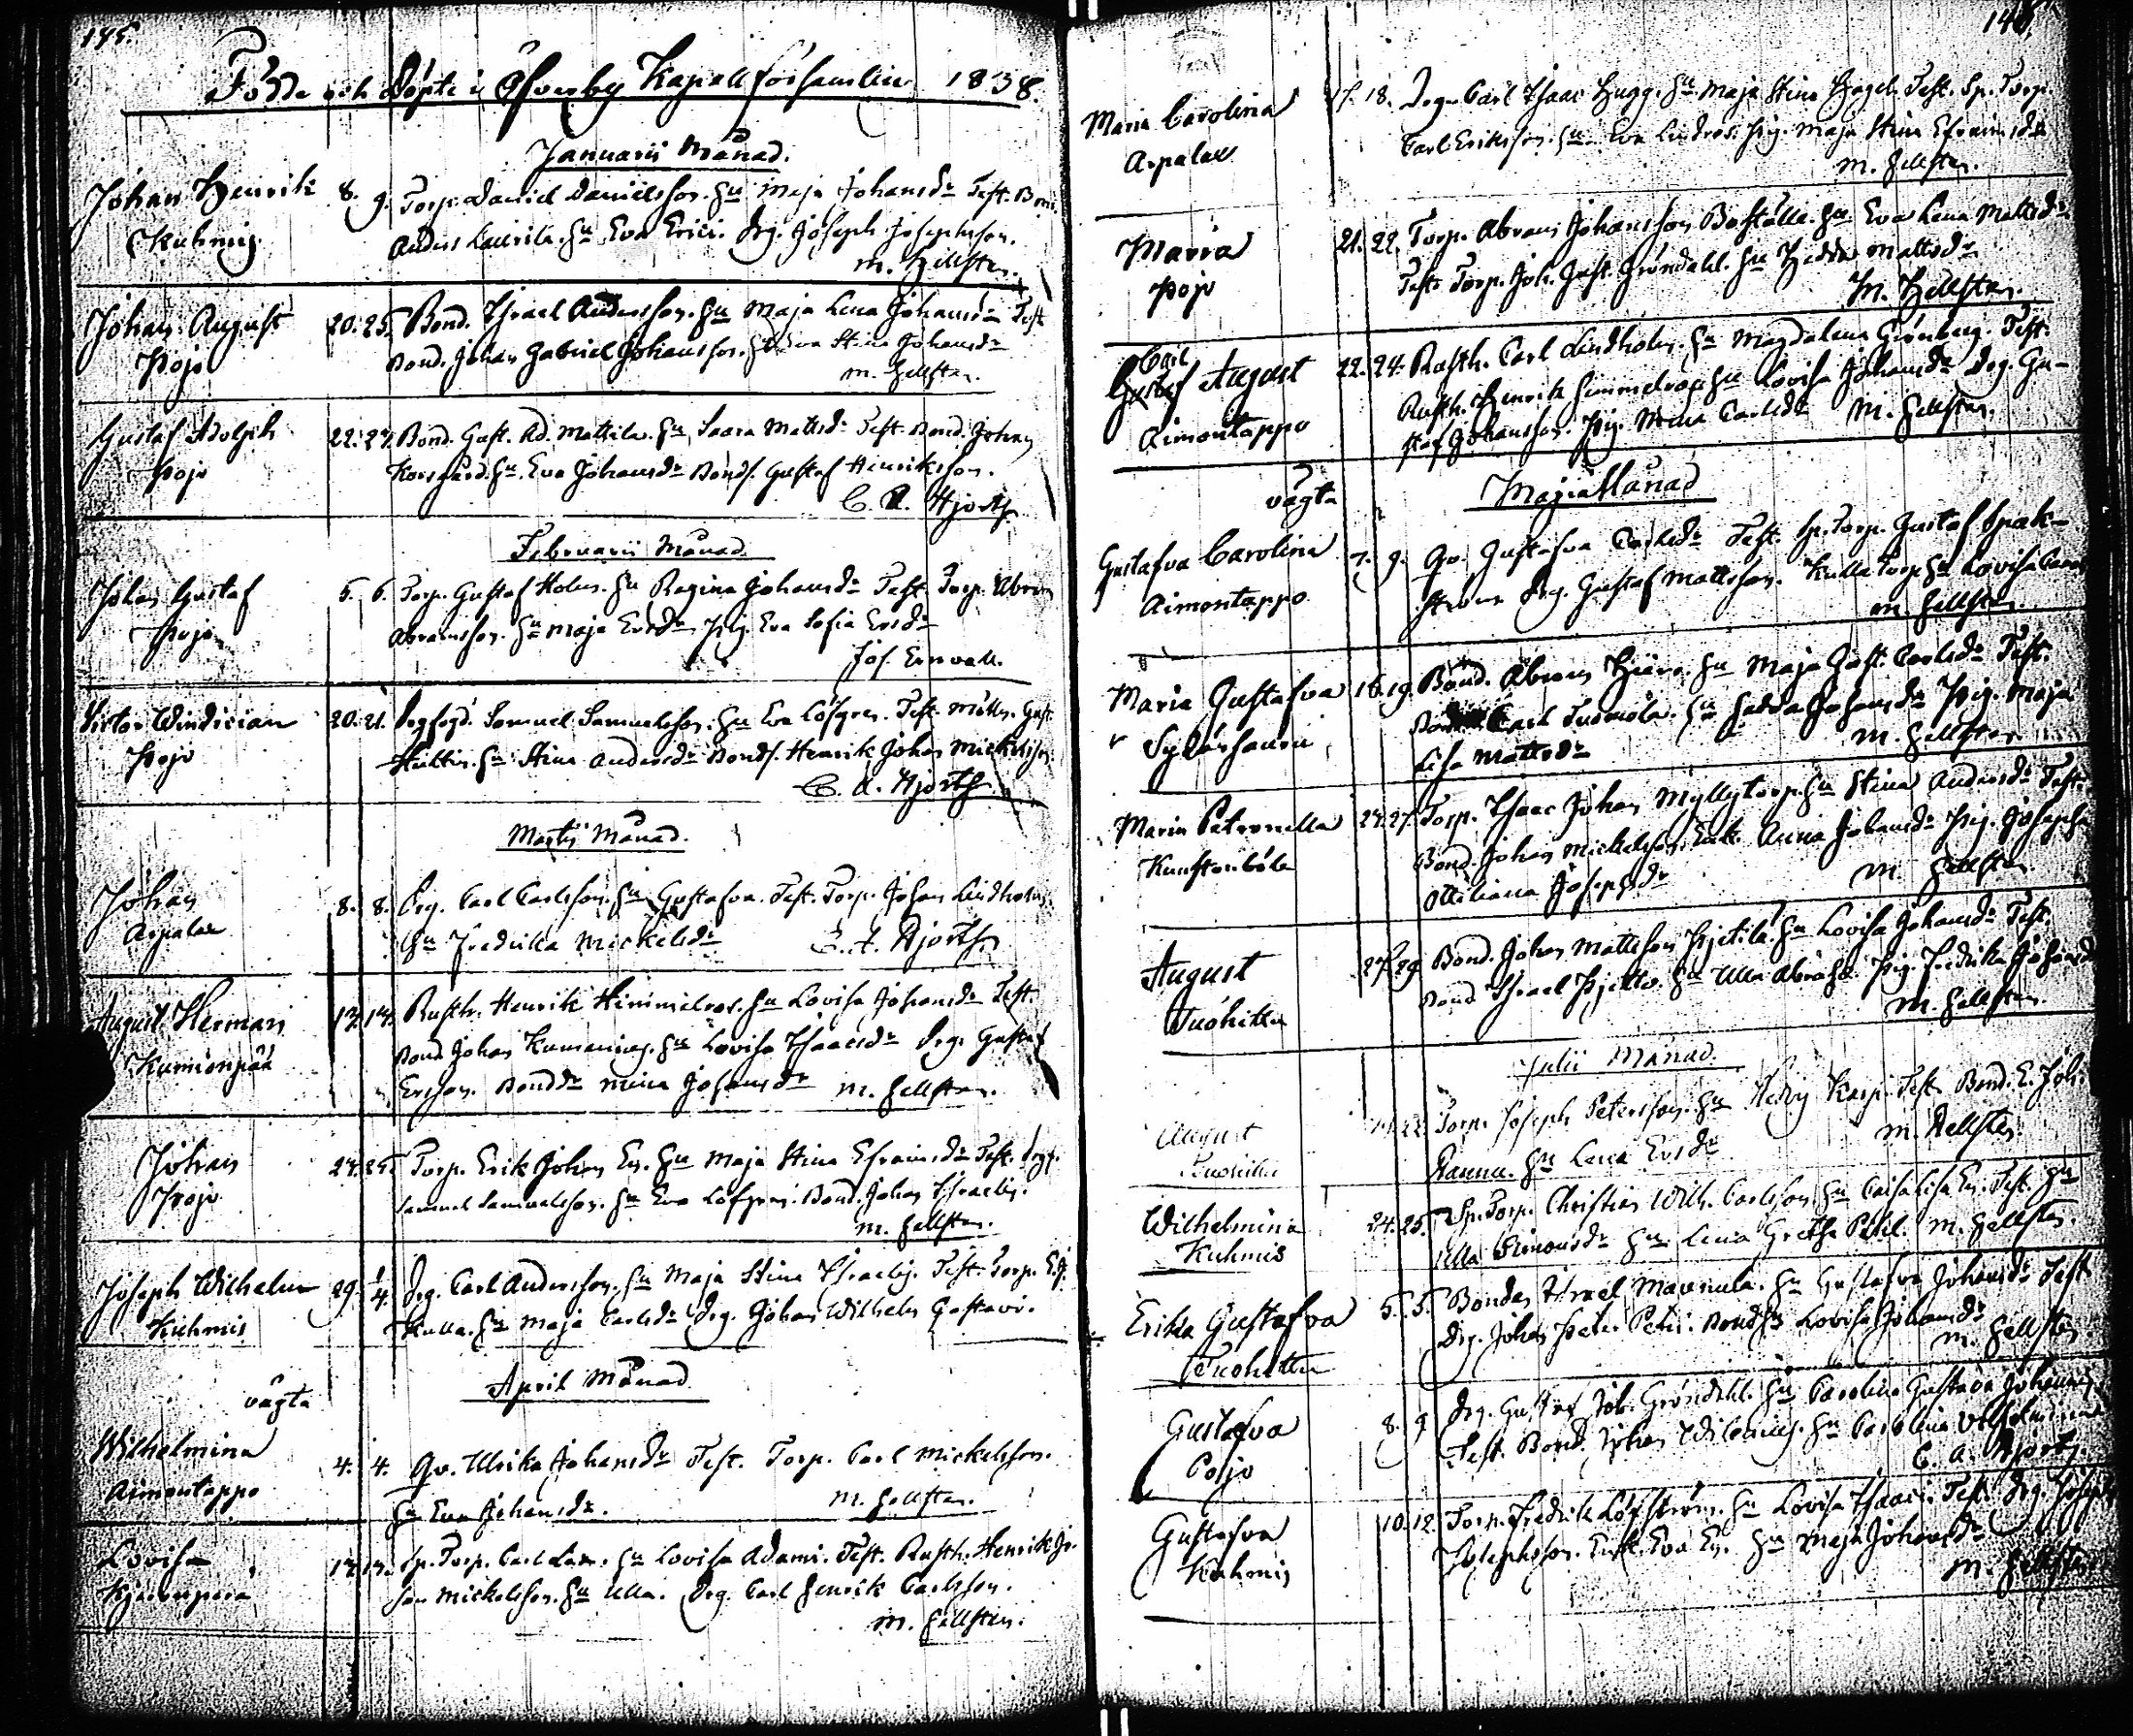 145.
Födde och Döpte i Öfverby Kapellförsamling 1838.
Januarii Månad.
Johan Henrik 8. 9. Torp. Daniel Danielsson. Hu Maja Johansdr Test. Bond.
Kuhmis. Anders Laurila. Hu Eva Erici. Drg. Joseph Josephsson.
M. Hellsten.
Johan August 20. 25. Bond. Israel Andersson. Hu Maja Lena Johansdr Test
Pojo Bond. Johan Gabriel Johansson. Stina Johansdr
M. Hellsten.
Gustaf Adolph 22. 27. Bond. Gust. Ad. Mattila. Hu Saara Mattsdr Test. Bond. Johan
Pojo Korsgård. Hu Eva Johansdr Bonds. Gustaf Henriksson.
C. A. Hjorth
Februarii Månad
Johan Gustaf 5. 6. Torp. Gustaf Holm. Hu Regina Johansdr Test Torp. Abram
Pojo Abramsson. Hu Maja Ersdr Pig. Eva Sofia Ersdr
Jos. Ernvall.
Victor Windician 20. 21. Samuel Samuelsson. Hu Eva Löfgren. Test. Möln. Gust.
Pojo Hultin. Hu Stina Andersdr Bonds. Henrik Johan Mickelsson
C. A. Hjorth
Martij Månad.
Johan 8. 8. Drg. Carl Carlsson. Hu Gustafva. Test. Torp. Johan Lindholm
Arpalax Hu Fredrika Mickelsdr C. A. Hjorth.
August Herman 13. 14. Rusth. Henrik Himmelroos. Hu Lovisa Johansdr Test.
Kumionpää Bond Johan Kumonius. Hu Lovisa Isaacsdr Drg. Gustaf
Ersson. Bonddr Mina Johansdr M. Hellsten.
Johan 24. 25. Torp. Erik Johan Er. Hu Maja Stina Efraimsdr Test.
Pojo Samuel Samuelsson. Hu Eva Löfgren. Bond. Johan Israelis.
M. Hellsten.
Joseph Wilhelm 29. 1/4. Drg. Carl Andersson. Hu Maja Stina Israelis. Test. Torp.
Kuhmis Kulla. Hu Maja Carlsdr Drg. Johan Wilhelm Gustavi.
April Månad
oägta
Wilhelmina 4. 4. Qv. Ulrika Johansdr Test. Torp. Carl Mickelsson.
Aimontappo Hu Eva Johansdr. M. Hellsten.
Lovisa 17. 17. Sp. Torp. Carl Hu Lovisa Adami. Test. Rusth. Henrik
Mickelsson. Hu Ulla. Drg. Carl Henrik Carlsson.
M. Hellsten.
146.
Maria Carolina 17. 18. Drg. Carl Isaac Hugg. Hu Maja Stina Test. Sp. Torp.
Arpalax Carl Eriksson. Hu Eva Pig. Maja Stina Efraimsdr
M. Hellsten.
Maria 21. 22. Torp. Abram Johansson Boställe. Hu Eva Lena Mattsdr
Pojo Test. Torp. Joh. Gust. Gröndahl. Hu Hedda Mattsdr
M. Hellsten.
Carl
Gustaf August 22. 24. Rusth. Carl Lindholm. Hu Magdalena Grönberg. Test.
Aimontappo Rusth. Henrik Himmelroos Hu Lovisa Johansdr Drg. Gu-
staf Johansson. Pig. Mina Carlsdr M. Hellsten.
Maji Månad
oägta
Gustafva Carolina 7. 9. Qv. Gustafva Carlsdr Test. Sp. Torp. Gustaf Spak-
Aimontappo ström Drg. Gustaf Mattsson. Kulla Torp. Hu Lovisa
M. Hellsten.
Maria Gustafva 16. 19. Bond. Abram Hu Maja Gust. Carlsdr Test.
Bond. Carl Hu Hedda Johansdr Pig. Maja
Lisa Mattsdr M. Hellsten
Maria Petronella 24. 27. Torp. Isaac Johan Myllytorp. Hu Stina Andersdr Test.
Kunstenböle Bond. Johan Mickelsson. Enk. Anna Johansdr Pig. Josepha
Ottiliana Josephsdr M. Hellsten.
August 27. 29. Bond. Johan Mattsson Hu Lovisa Johansdr Test.
Tuohittu Bond Israel Hu Ulla Abrahs. Pig. Fredrika Johansdr
M. Hellsten.
Julii Månad.
August 22. Torp. Joseph Petersson. Hu Hedvig Test. Bond. E. Joh.
Tuohittu Ranna. Hu Lena Ersdr M. Hellsten.
Wilhelmina 24. 25. Sp. Torp. Christian Wilh. Carlsson. Hu Caisa Lisa Er. Test. Hu
Kuhmis Ulla Simonsdr Hu Lena Greta M. Hellsten.
Erika Gustafva 5. 5. Bonden Israel Maunula. Hu Gustafva Johansdr Test
Tuohittu Drg. Johan Peter Petri. Lovisa Johansdr
M. Hellsten
Gustafva 8. 9. Drg. Gustaf Joh. Gröndahl. Hu Carolina Gustava Johannis
Pojo Test. Bond. Johan Hu Carolina Wilhelmina
C. A. Hjorth.
Gustafva 10. 12. Torp. Fredrik Löfström. Hu Lovisa Isaaci. Test. Drg. Joseph
Kuhmis Josephsson. Enk. Eva Er. Hu Maja Johansdr
M. Hellsten